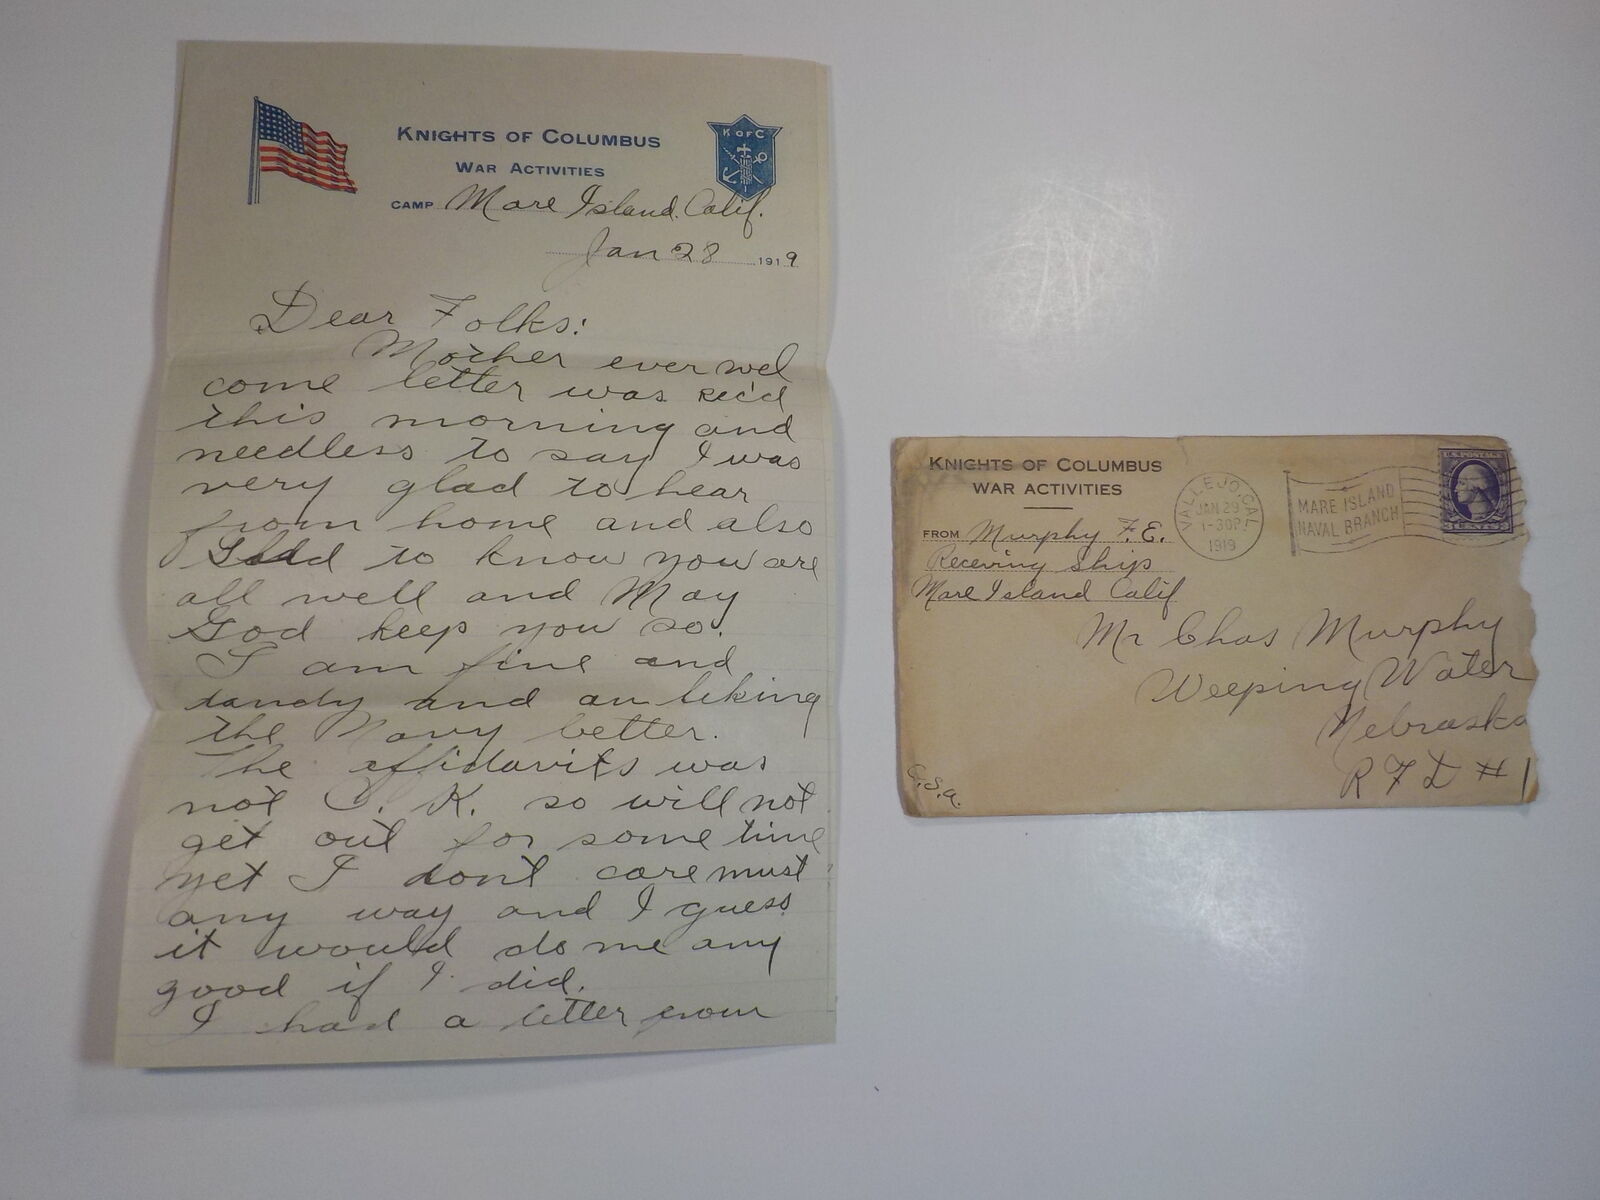 KNIGHTS OF COLUMBUS
K OF C
WAR ACTIVITIES
CAMP Mare Island. Calif.
Jan 28 1919
Dear Folks:
Mother ever wel
come letter was rec'd
this morning and
needless to say I was
very glad to hear
from home and also
Glad to know you are
all well and May
God keep you so.
I am fine and
dandy and am liking
the Navy better.
The affidavits was
not O. K. so will not
get out for some time
yet I dont care must
any way and I guess
it would do me any
good if I did.
I had a letter from
KNIGHTS OF COLUMBUS
WAR ACTIVITIES
FROM Murphy F. E.
Receiving Ship
Mare Island Calif
VALLEJO, CAL.
JAN 29
1-30P
1919
MARE ISLAND
NAVAL BRANCH
U.S. POSTAGE
3 CENTS 3
Mr Chas Murphy
Weeping Water
Nebraska
R F D # 1
U.S.A.